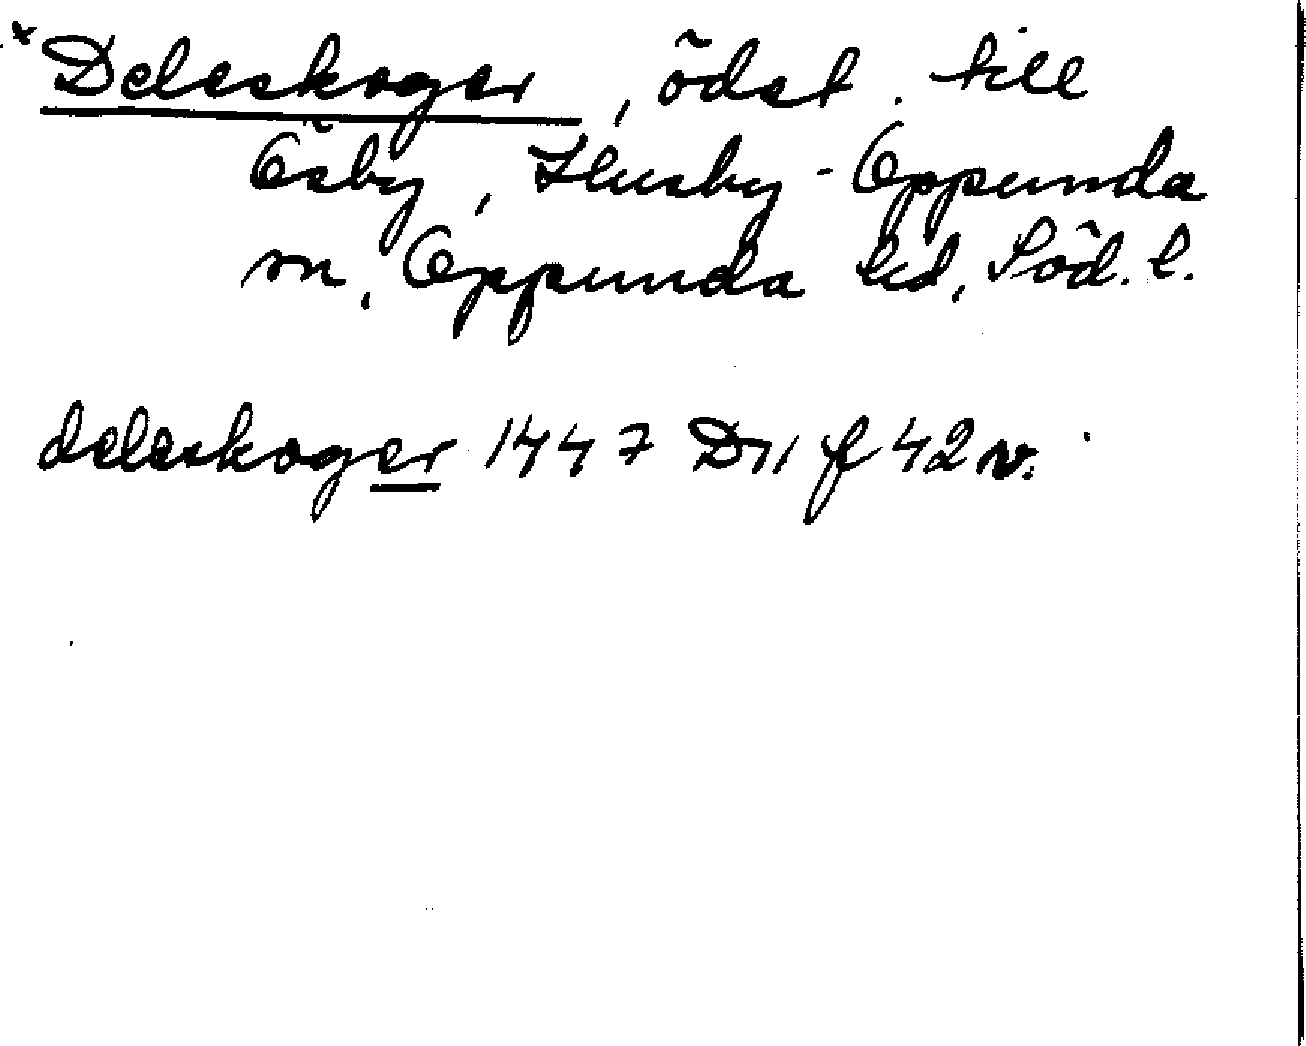 *Deleskoger, ödet. till
Ösby, Husby-Oppunda
sn, Oppunda hd, Söd. l.
deleskoger 1447 D11 f 42 v.